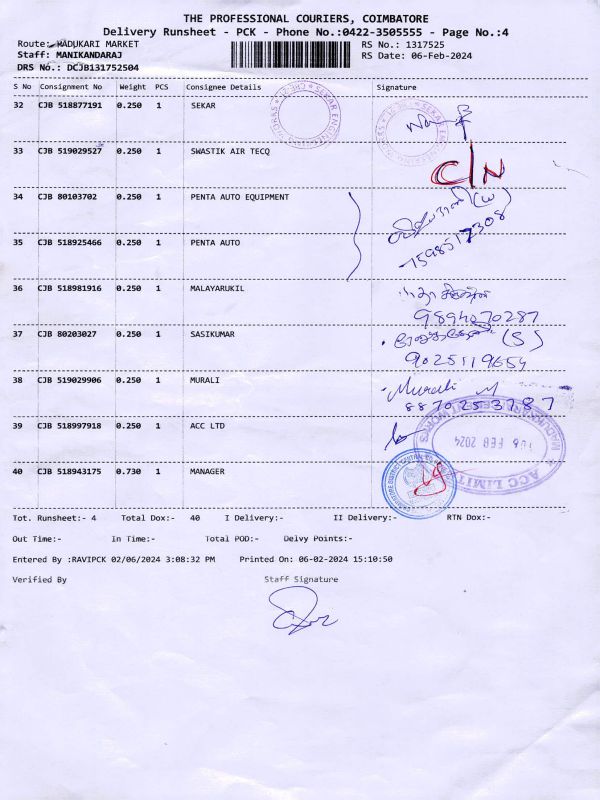 THE PROFESSIONAL COURIERS, COIMBATORE
Delivery Runsheet - PCK - Phone No.:0422-3505555 - Page No.:4
Route: MADUKARI MARKET
RS No.: 1317525
Staff: MANIKANDARAJ
RS Date: 06-Feb-2024
DRS No.: DCJB131752504
S No Consignment No Weight PCS Consignee Details Signature
32 CJB 518877191 0.250 1 SEKAR
33 CJB 519029527 0.250 1 SWASTIK AIR TECQ C/N
34 CJB 80103702 0.250 1 PENTA AUTO EQUIPMENT (W)
7598517308
35 CJB 518925466 0.250 1 PENTA AUTO
36 CJB 518981916 0.250 1 MALAYARUKIL
9894070287
37 CJB 80203027 0.250 1 SASIKUMAR (S)
9025119654
38 CJB 519029906 0.250 1 MURALI Murali M
8870253787
39 CJB 518997918 0.250 1 ACC LTD
06 FEB 2024
ACC LIMIT
40 CJB 518943175 0.730 1 MANAGER
Tot. Runsheet:- 4 Total Dox:- 40 I Delivery:- II Delivery:- RTN Dox:-
Out Time:- In Time:- Total POD:- Delvy Points:-
Entered By :RAVIPCK 02/06/2024 3:08:32 PM Printed On: 06-02-2024 15:10:50
Verified By Staff Signature